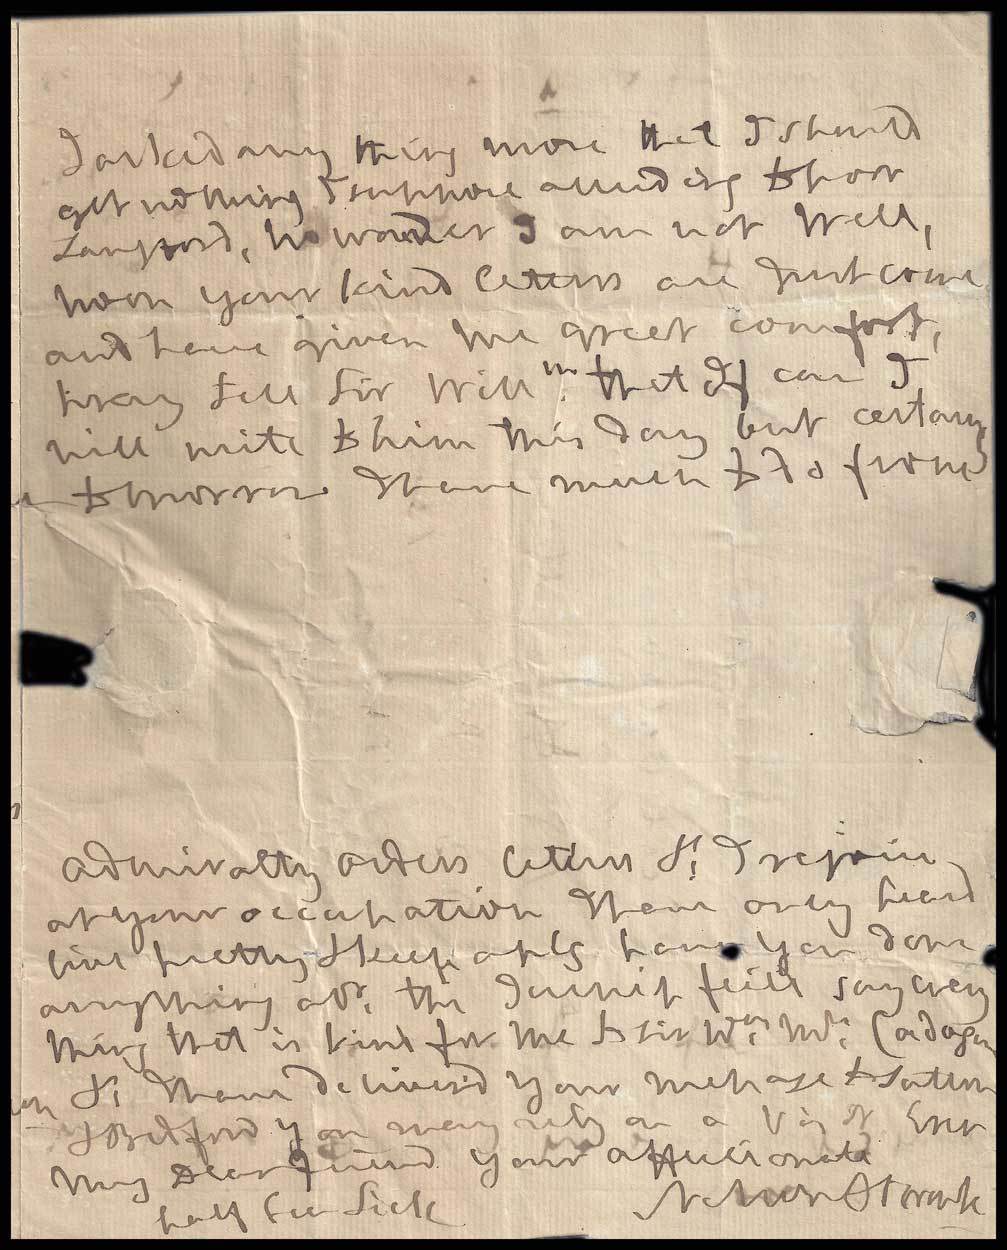 I asked any thing more that I should
get nothing I suppose alluding to poor
Langford, no wonder I am not well,
noon your kind letters are Just come
and have given me great comfort,
pray tell Sir Will.m that If can I
will write to him this day but certainly
tomorrow I have much to do from
admiralty orders letters &c: I rejoice
at your occupation I have only heard
live pretty & keep a pig have you done
anything abt: the Turnip feild say every
thing that is kind for me to Sir Wm: Mrs: Cadogan
&c: I have deliver'd your mepage to Sutton
& Bedford you may rely on a Visit Ever
My Dear friend your affectionate
half Sea Sick Nelson & Bronte